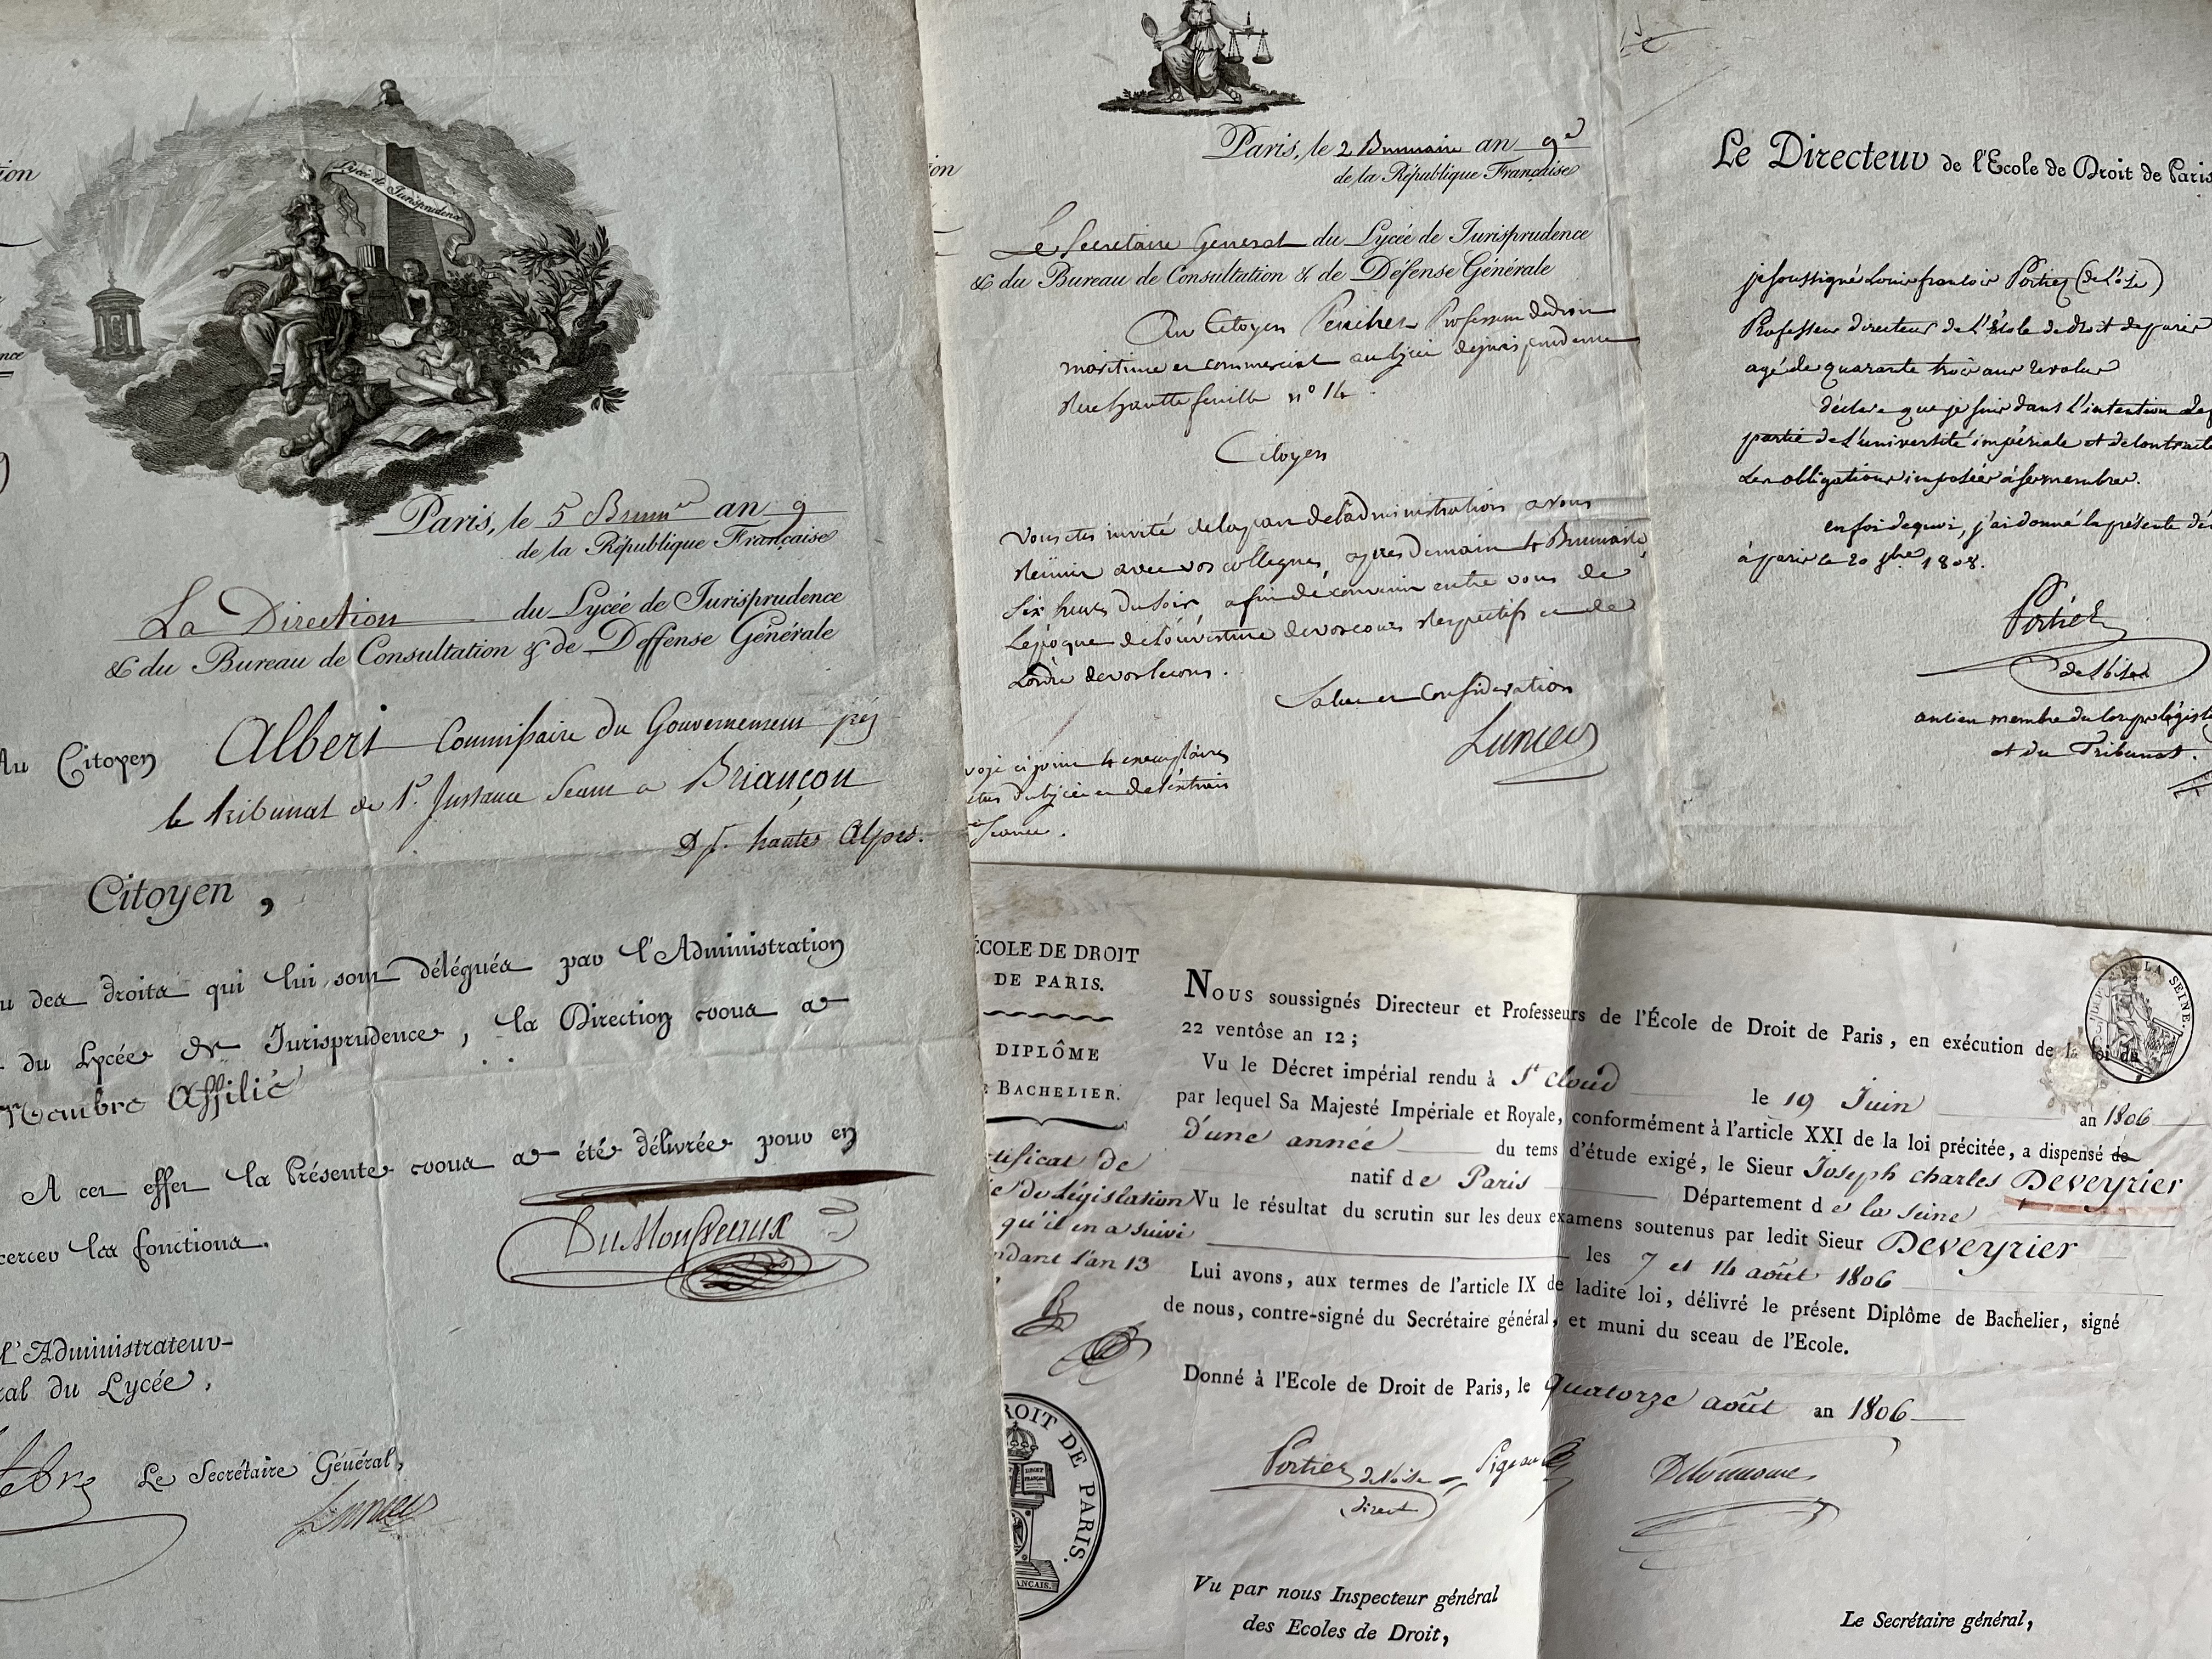 Lycée de Jurisprudence
Paris, le 5 Brum.re an 9
de la République Française
La Direction du Lycée de Jurisprudence
& du Bureau de Consultation & de Deffense Générale
Au Citoyen Albert Commissaire du Gouvernement près
le tribunal de 1e. Instance Séant a Briançon
Dpt. hautes Alpes.
Citoyen,
des droits qui lui sont délégués par l'Administration
du Lycée de Jurisprudence, la Direction vous a
Membre Affilié
A cet effet la Présente vous a été délivrée pour en
les fonctions.
DuMousseaux
l'Administrateur
du Lycée,
Le Secrétaire Général,
Paris, le 2 Brumaire an 9e
de la République Française
Le Secretaire General du Lycée de Jurisprudence
& du Bureau de Consultation & de Défense Générale
Au Citoyen Professeur de droit
maritime et commercial au lycée de jurisprudence
Rue hautte feuille n° 14.
Citoyen
Vous etes invité de la part de l'administration a vous
Réunir avec vos collegues, apres demain 4 Brumaire,
Six heures du Soir, afin de convenir entre vous de
l'époque de l'ouverture de vos cours Respectifs et de
L'ordre de vos lecons.
Salut et Consideration
ci joint 4 exemplaires
du lycée et de l'extrait
Séance.
Le Directeur de l'Ecole de Droit de Paris
je soussigné Louis francois Portiez (de l'oise)
Professeur directeur de l'École de droit de paris
agé de quarante trois ans révolus
déclare que je suis dans l'intention de
partie de l'université impériale et de contracter
les obligations imposées à ses membres.
en foi de quoi, j'ai donné la présente
à paris le 20 8bre 1808.
Portiez
de l'oise
ancien membre du corps législatif
et du Tribunat.
ÉCOLE DE DROIT
DE PARIS.
DIPLÔME
BACHELIER.
de législation
qu'il en a suivi
l'an 13
DROIT DE PARIS.
DE LA SEINE
Nous soussignés Directeur et Professeurs de l'École de Droit de Paris, en exécution de la loi du
22 ventôse an 12;
Vu le Décret impérial rendu à St Cloud le 19 Juin an 1806
par lequel Sa Majesté Impériale et Royale, conformément à l'article XXI de la loi précitée, a dispensé de
d'une année du tems d'étude exigé, le Sieur Joseph Charles Deveyrier
natif de Paris Département de la Seine
Vu le résultat du scrutin sur les deux examens soutenus par ledit Sieur Deveyrier
les 7 et 14 août 1806
Lui avons, aux termes de l'article IX de ladite loi, délivré le présent Diplôme de Bachelier, signé
de nous, contre-signé du Secrétaire général, et muni du sceau de l'Ecole.
Donné à l'Ecole de Droit de Paris, le quatorze août an 1806
Portiez de l'oise Pigeau
direct
Vu par nous Inspecteur général
des Ecoles de Droit,
Le Secrétaire général,